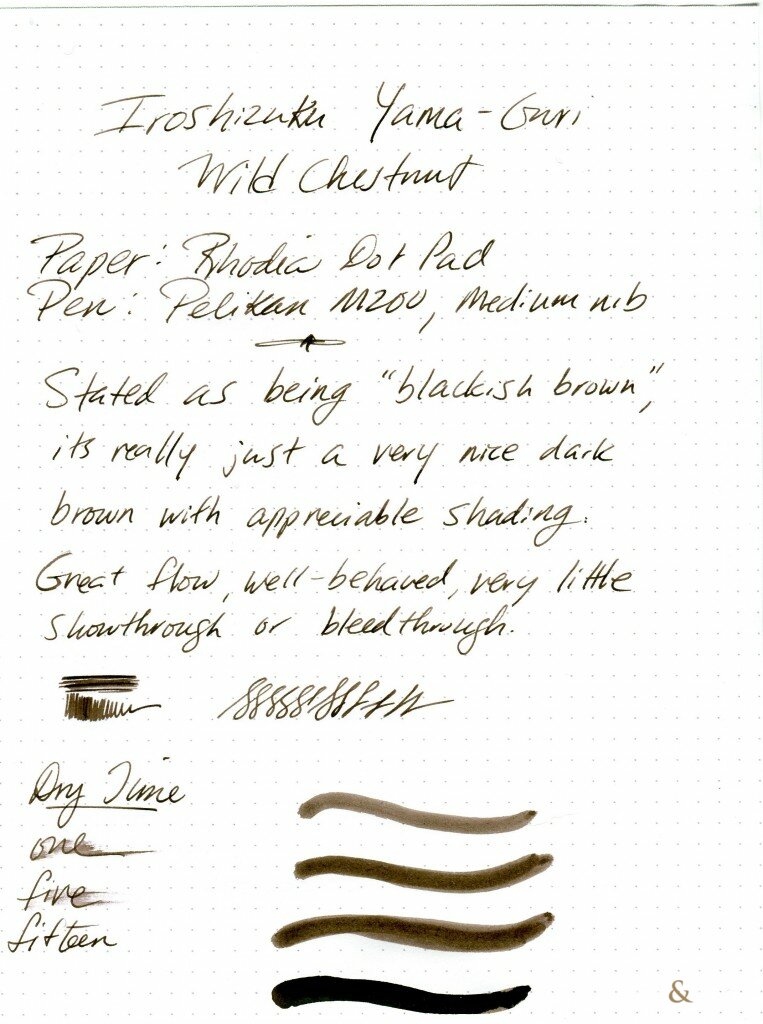 Iroshizuku Yama-Guri
Wild Chestnut
Paper: Rhodia Dot Pad
Pen: Pelikan M200, Medium nib
Stated as being "blackish brown",
its really just a very nice dark
brown with appreciable shading.
Great flow, well-behaved, very little
showthrough or bleedthrough.
Dry Time
one
five
fifteen
&